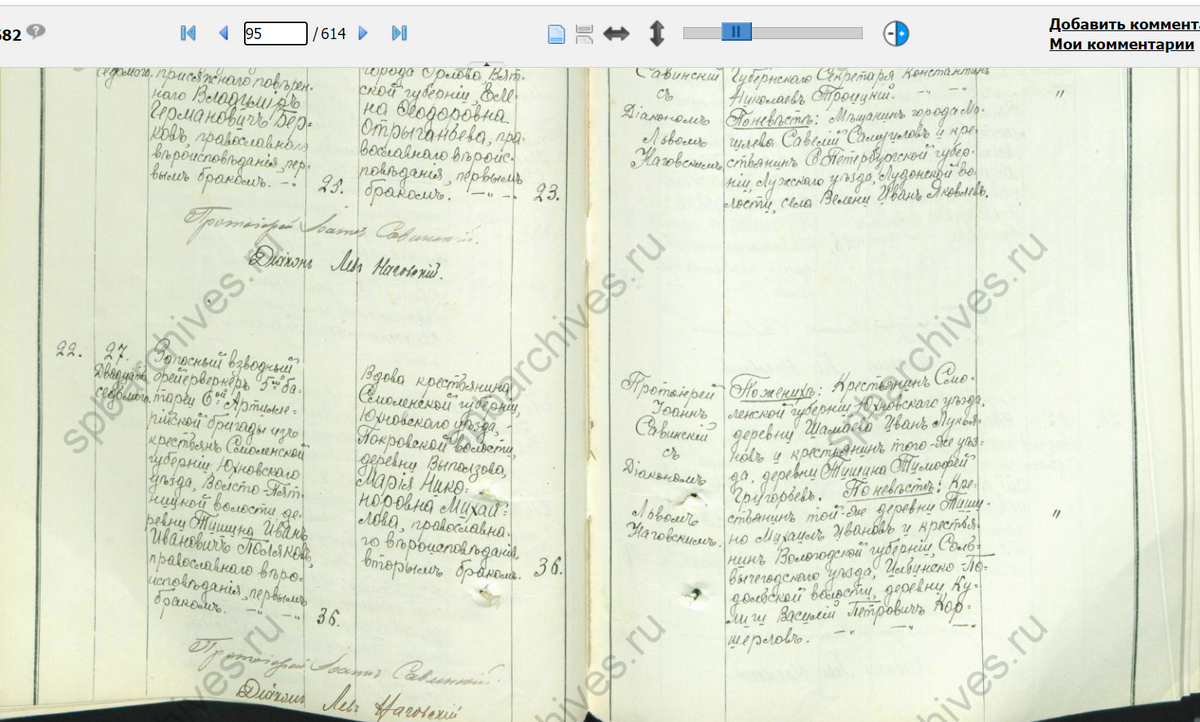 682
95
/ 614
Добавить коммент
Мои комментарии
седьмого.
присяжного повѣрен-
наго Владиміръ
Германовичъ Бер-
ковъ, православнаго
вѣроисповѣданія, пер-
вымъ бракомъ.
25.
города Орлова Вят-
ской губерніи, Еле-
на Ѳеодоровна
Отрыганьева, пра-
вославнаго вѣроис-
повѣданія, первымъ
бракомъ.
23.
Савинскій
съ
Діакономъ
Львомъ
Наговскимъ.
Губернскаго Секретаря Константинъ
Николаевъ Троицкій.
Поневѣстѣ: Мѣщанинъ города Мо-
гилева Савелій Самуиловъ и кре-
стьянинъ С.Петербургской губер-
ніи, Лужскаго уѣзда, Лудонской во-
лости, села Велени Иванъ Яковлевъ.
"
Протоіерей Іоаннъ Савинскій.
Діаконъ Левъ Наговскій.
22.
27.
Двадцать
седьмого.
Запасный взводный
фейерверкеръ 5ой ба-
тареи 6ой Артилле-
рійской бригады изъ
крестьянъ Смоленской
губерніи Юхновскаго
уѣзда, Волсто-Пят-
ницкой волости де-
ревни Тишина Иванъ
Ивановичъ Поляковъ,
православнаго вѣро-
исповѣданія, первымъ
бракомъ.
36.
Вдова крестьянина
Смоленской губерніи,
Юхновскаго уѣзда,
Покровской волости,
деревни Выползова,
Марія Нико-
норовна Михай-
лова, православна-
го вѣроисповѣданія,
вторымъ бракомъ.
36.
Протоіерей
Іоаннъ
Савинскій
съ
Діакономъ
Львомъ
Наговскимъ.
Поженихѣ: Крестьянинъ Смо-
ленской губерніи Юхновскаго уѣзда,
деревни Шамаева Иванъ Лукья-
новъ и крестьянинъ того-же уѣз-
да, деревни Тишина Тимофей
Григорьевъ. Поневѣстѣ: Кре-
стьянинъ той-же деревни Тиши-
но Михаилъ Ивановъ и крестья-
нинъ Вологодской губерніи, Соль-
вычегодскаго уѣзда, Ильинско-По-
дольской волости, деревни Ку-
лиги Василій Петровичъ Кор-
шерловъ.
"
Протоіерей Іоаннъ Савинскій.
Діаконъ Левъ Наговскій
spbarchives.ru
spbarchives.ru
spbarchives.ru
spbarchives.ru
spbarchives.ru
spbarchives.ru